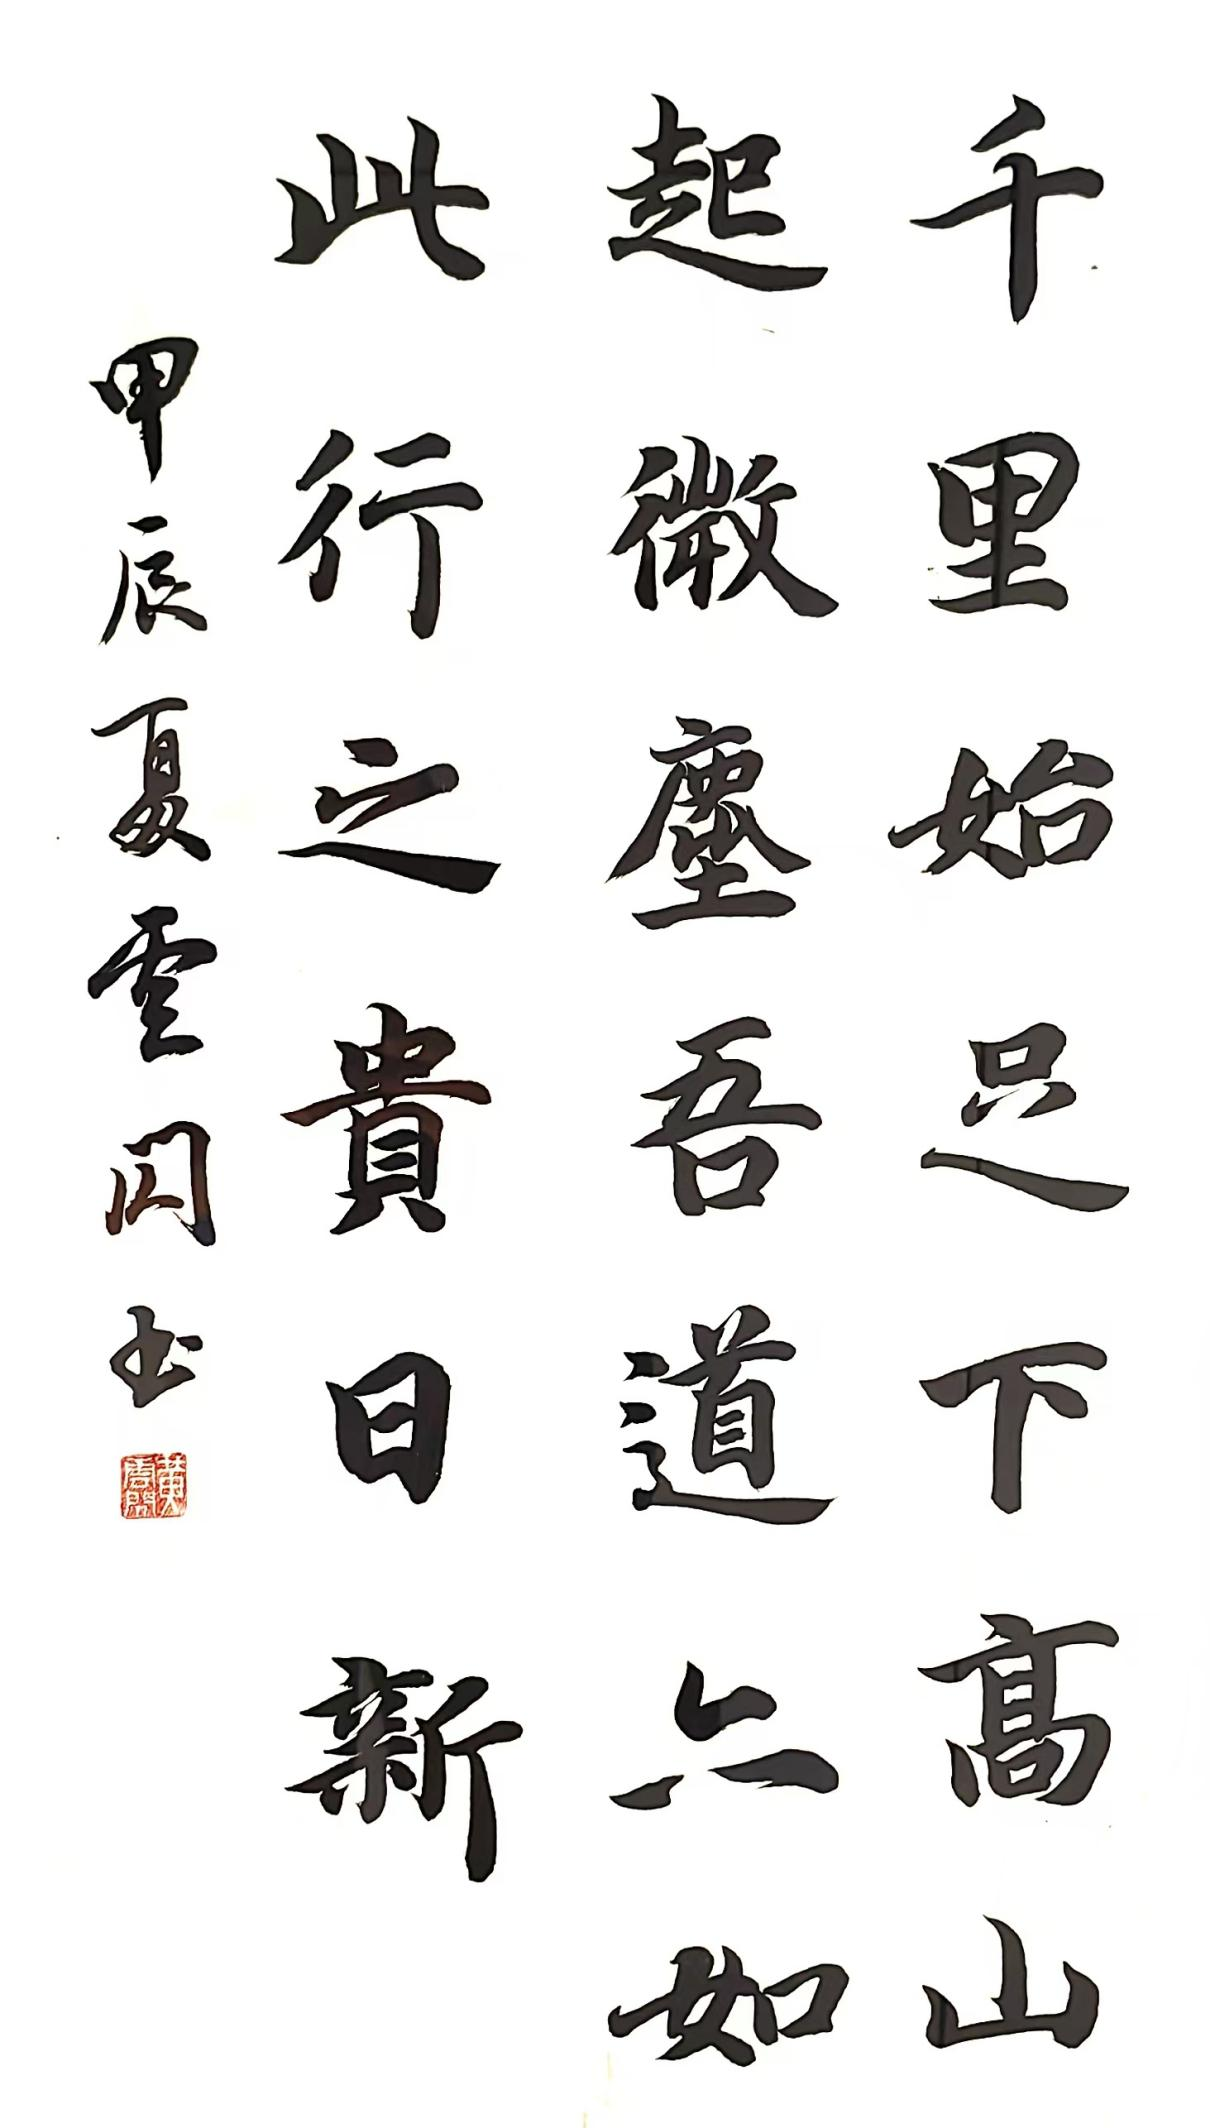 千里始足下高山
起微塵吾道亦如
此行之貴日新
甲辰夏雲閃书
黄雲閃